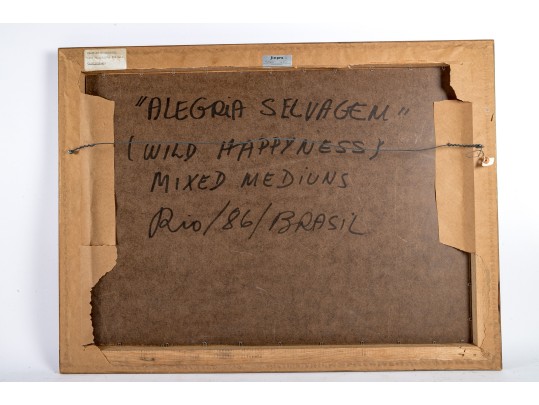 "ALEGRIA SELVAGEM"
(WILD HAPPYNESS)
MIXED MEDIUNS
Rio/86/BRASIL